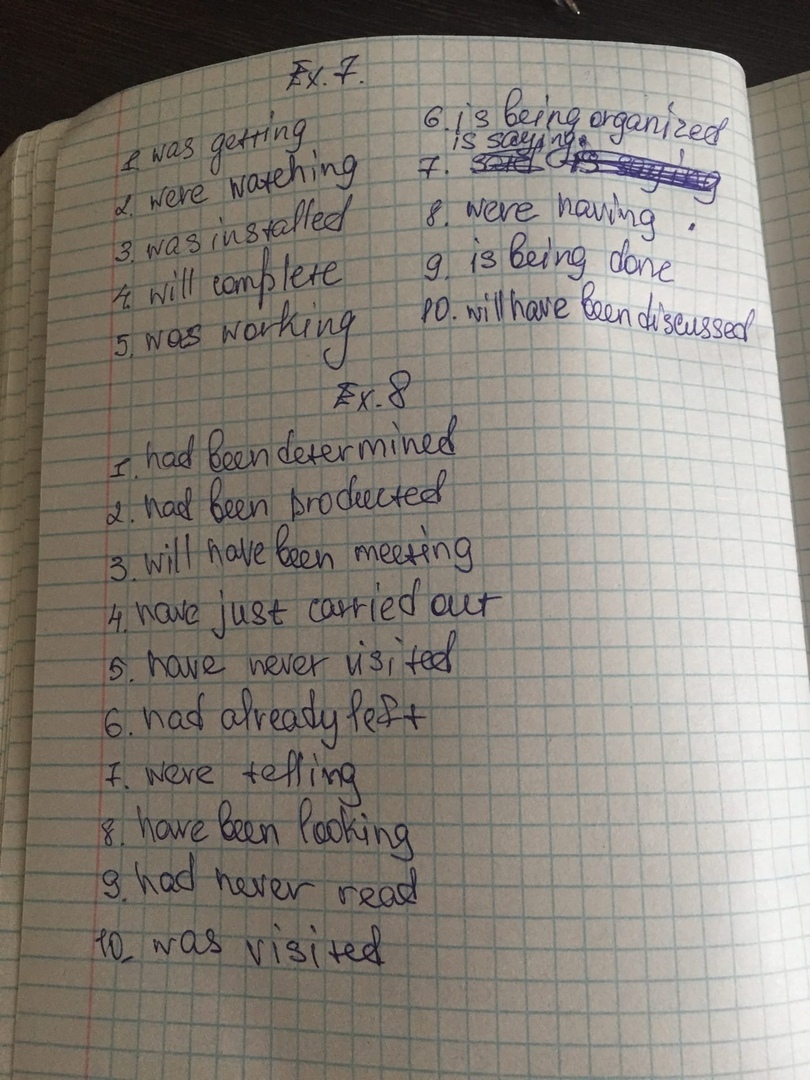 Ex. 7.
1. was getting
2. were watching
3. was installed
4. will complete
5. was working
6. is being organized
is saying.
7.
8. were having.
9. is being done
10. will have been discussed
Ex. 8
1. had been determined
2. had been producted
3. will have been meeting
4. have just carried out
5. have never visited
6. had already left
7. were telling
8. have been looking
9. had never read
10. was visited